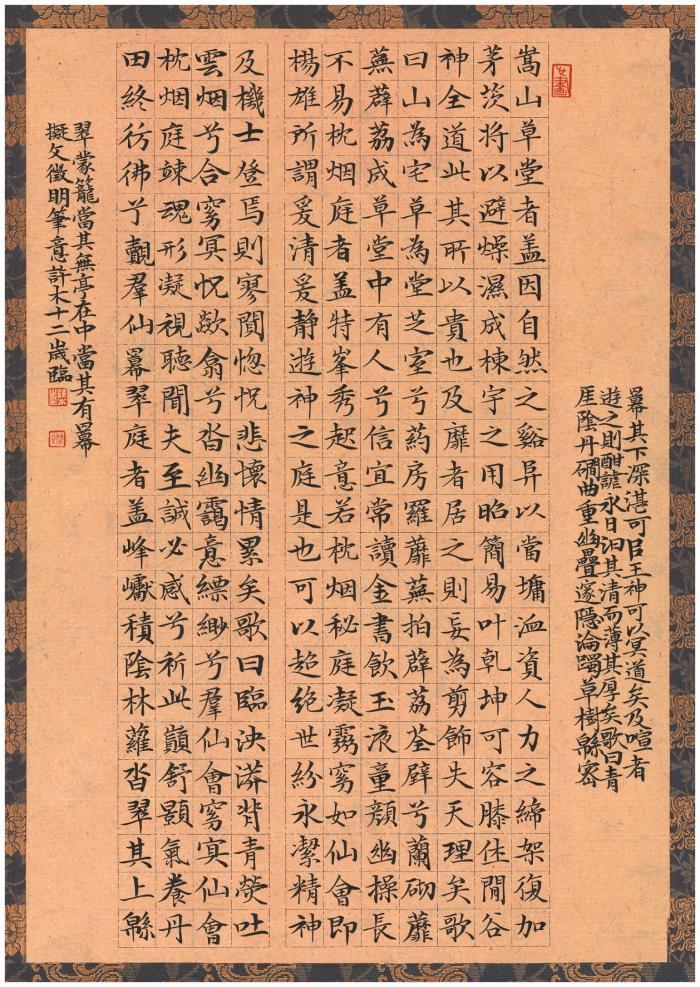 嵩山草堂者盖因自然之谿异以當墉洫資人力之締架復加
茅茨將以避燥濕成棟宇之用昭簡易叶乾坤可容膝休閒谷
神全道此其所以貴也及靡者居之則妄為剪飾失天理矣歌
曰山為宅草為堂芝室兮葯房羅蘼蕪拍薜荔荃壁兮蘭砌蘼
蕪薜荔成草堂中有人兮信宜常讀金書飲玉液童顏幽操長
不易枕烟庭者盖特峯秀起意若枕烟秘庭凝霧窅如仙會即
楊雄所謂爰清爰静遊神之庭是也可以超絕世紛永潔精神
及機士登焉則寥閴惚怳悲懷情累矣歌曰臨泱漭背青熒吐
雲烟兮合窅冥怳欻翕兮沓幽靄意縹緲兮羣仙會窅冥仙會
枕烟庭竦魂形凝視聽聞夫至誠必感兮祈此巔舒顥氣養丹
田終彷彿兮覿羣仙羃翠庭者盖峰巘積陰林蘿沓翠其上緜
羃其下深湛可以王神可以冥道矣及喧者
遊之則酣謔永日汩其清而薄其厚矣歌曰青
厓陰丹磵曲重幽疊邃隱淪躅草樹緜密
翠蒙籠當其無亭在中當其有羃
擬文徵明筆意許木十二歲臨